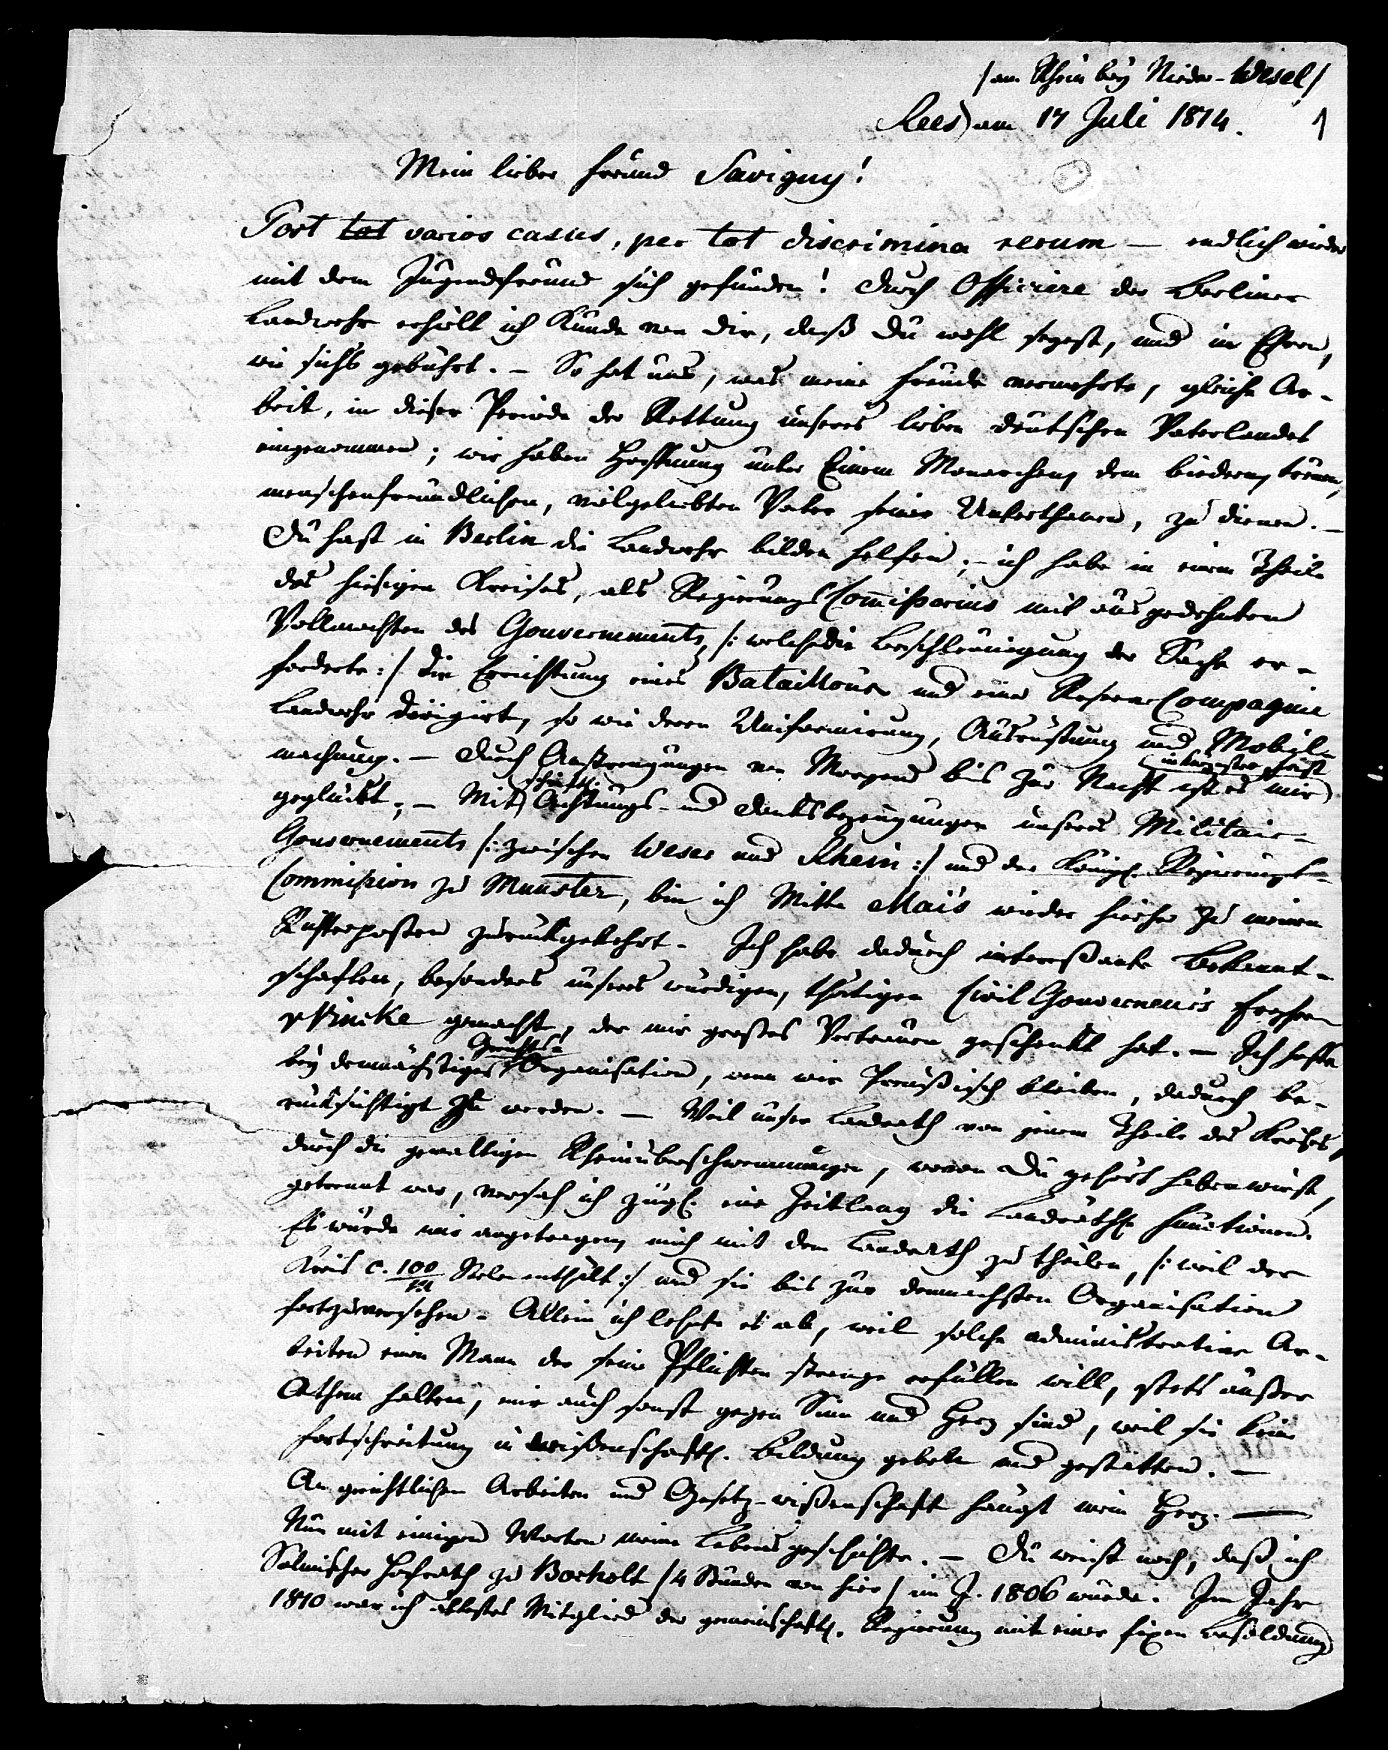 /am Rhein bey Nieder-Wesel/
Rees am 17 Juli 1814.
1
Mein lieber Freund Savigny!
Post tot varios casus, per tot discrimina rerum — endlich wieder
mit dem Jugendfreund sich gefunden! Durch Officiere der Berliner
Landwehr erhielt ich Kunde von Dir, daß Du wohl seyest, und in Ehren,
wie sichs gebührt. — So hat uns, was meine Freude vermehrte, gleiche Ar-
beit, in dieser Periode der Rettung unseres lieben deutschen Vaterlandes
eingenommen; wir haben Hoffnung unter Einem Monarchen, dem biedern, treuen,
menschenfreundlichen, vielgeliebten Vater seiner Unterthanen, zu dienen. —
Du hast in Berlin die Landwehr bilden helfen; — ich habe in einem Theile
des hiesigen Kreises, als Regierungs Commißarius mit ausgedehnten
Vollmachten des Gouvernements, /: welche die Beschleunigung der Sache er-
forderte :/ die Errichtung eines Bataillons und einer Reserve Compagnie
Landwehr dirigirt, so wie deren Uniformirung, Ausrüstung und Mobil-
machung. — Durch Anstrengungen von Morgens bis zur Nacht ist es mir
in kurzester Frist
geglückt; — Mit Achtungs- und Dankbezeugungen unseres Militair-
Gouvernements /: zwischen Weser und Rhein :/ und der Königl. Regierungs-
Commißion zu Münster, bin ich Mitte Mai's wieder hierher zu meinem
Richterposten zurückgekehrt. Ich habe dadurch interessante Bekannt-
schaften, besonders unseres würdigen, thätigen Civil Gouverneurs Freyherrn
v Vincke gemacht, der mir großes Vertrauen geschenkt hat. — Ich hoffe
bey demnächstiger Gerichts-Organisation, wenn wir Preußisch bleiben, dadurch be-
rücksichtigt zu werden. — Weil unser Landrath von jenem Theile des Kreises,
durch die gewaltigen Rheinüberschwemmungen, wovon Du gehört haben wirst,
getrennt war, versah ich zugl. eine Zeitlang die Landräthl. Functionen.
Es wurde mir angetragen, mich mit dem Landrath zu theilen, /: weil der
Kreis c. 100/M Selen enthält :/ und sie bis zur demnächsten Organisation
fortzuversehen. Allein ich lehnte es ab, weil solche administrative Ar-
beiten einen Mann der seine Pflichten strenge erfüllen will, stets außer
Athem halten, mir auch sonst gegen Sinn und Herz sind, weil sie keine
Fortschreitung in wißenschaftl. Bildung geben und gestatten. —
An gerichtlichen Arbeiten und Gesetz-wißenschaft hängt mein Herz. —
Nun mit einigen Worten meine Lebensgeschichte. — Du weißt noch, daß ich
Salmischer Hofrath zu Bocholt /4 Stunden von hier/ im J. 1806 wurde. Im Jahr
1810 war ich ältestes Mitglied der gemeinschaftl. Regierung mit einer fixen Besoldung